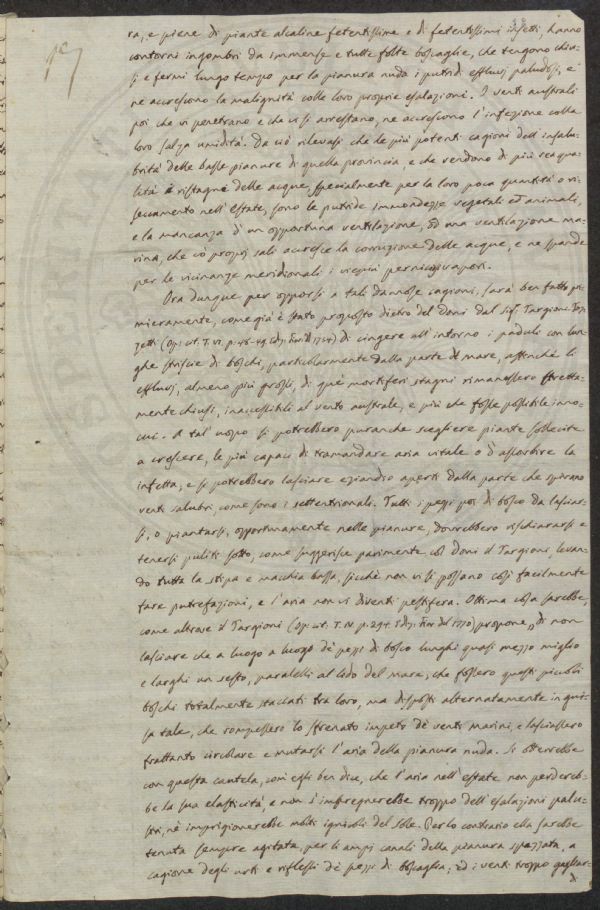 ra, e piene di piante alcaline fetentissime e di fetentissimi insetti, hanno
contorni ingombri da immense e tutte folte boscaglie, che tengono chiu-
si e fermi lungo tempo per la pianura nuda i putridi effluvj paludosi, e
ne accrescono la malignità colle loro proprie esalazioni. I venti australi
poi che vi penetrano e che vi si arrestano, ne accrescono l'infezione colla
loro salza umidità. Da ciò rilevasi che le più potenti cagioni dell'insalu-
brità delle basse pianure di quella provincia, e che vendono di più reaqua-
lità è ristagno delle acque, specialmente per la loro poca quantità o ri-
seccamento nell'estate, sono le putride immondezze vegetali ed animali,
e la mancanza d'un opportuna ventilazione, od una ventilazione ma-
rina, che co' proprj sali accresce la corruzione delle acque, e ne spande
per le vicinanze meridionali i vieppiù perniciosi vapori.
Ora dunque per opporsi a tali dannose cagioni, sarà ben fatto pri-
mieramente, come già è stato proposto dietro del Doni dal Sigr. Targioni Toz-
zetti (Op. cit. T. VI. p. 48-49. ediz. Fior. del 1754) di cingere all'intorno i paduli con lun-
ghe striscie di boschi, particolarmente dalla parte di mare, affinchè li
effluvj, almeno più grossi, di que' mortiferi stagni rimanessero stretta-
mente chiusi, inaccessibili al vento australe, e più che fosse possibile inno-
cui. A tal'uopo si potrebbero puranche scegliere piante sollecite
a crescere, le più capaci di tramandare aria vitale o d'assorbire la
infetta, e si potrebbero lasciare eziandio aperti dalla parte che spirano
venti salubri, come sono i settentrionali. Tutti i pezzi poi di bosco da lasciar-
si, o piantarsi, opportunamente nelle pianure, dovrebbero rischiararsi e
tenersi puliti sotto, come suggerisce parimente col Doni il Targioni, levan-
do tutta la stipa e macchia bassa, sicchè non vi si possano così facilmente
fare putrefazioni, e l'aria non vi diventi pestifera. Ottima cosa sarebbe,
come altrove il Targioni (Op. cit. T. IV. p. 294. ediz. Fior. del 1770) propone, „di non
lasciare che a luogo a luogo de' pezzi di bosco lunghi quasi mezzo miglio
e larghi un sesto, paralelli al lido del mare, che fossero questi piccoli
boschi totalmente staccati tra loro, ma disposti alternatamente in gui-
sa tale, che rompessero lo sfrenato impeto de' venti marini, e lasciassero
frattanto circolare e mutarsi l'aria della pianura nuda. Si otterrebbe
con questa cautela, com'egli ben dice, che l'aria nell'estate non perdereb-
be la sua elasticità, e non s'impregnerebbe troppo dell'esalazioni palu-
stri, nè imprigionerebbe molti ignicoli del Sole. Per lo contrario ella sarebbe
tenuta sempre agitata, per li ampi canali della pianura spezzata, a
cagione degli urti e riflessi de' pezzi di boscaglia; ed i venti troppo gagliar-
di